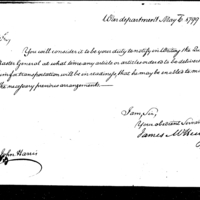 War department May 6 1799
Sir,
You will consider it to be your duty to notify in writing the Qua
Master General at what time any article or articles ordered to be delivered
for transportation will be in readiness, that he may be enabled to m
the necessary previous arrangements.
I am Sir,
Your obedient Servant
James McHenr
John Harris